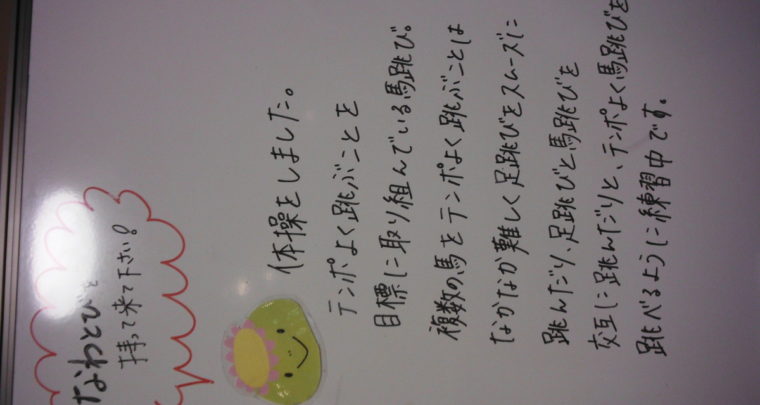 体操をしました。
テンポよく跳ぶことを
目標に取り組んでいる馬跳び。
複数の馬をテンポよく跳ぶことは
なかなか難しく足跳びをスムーズに
跳んだり、足跳びと馬跳びを
交互に跳んだりと、テンポよく馬跳びを
跳べるように練習中です。
なわとびを
持って来て下さい!